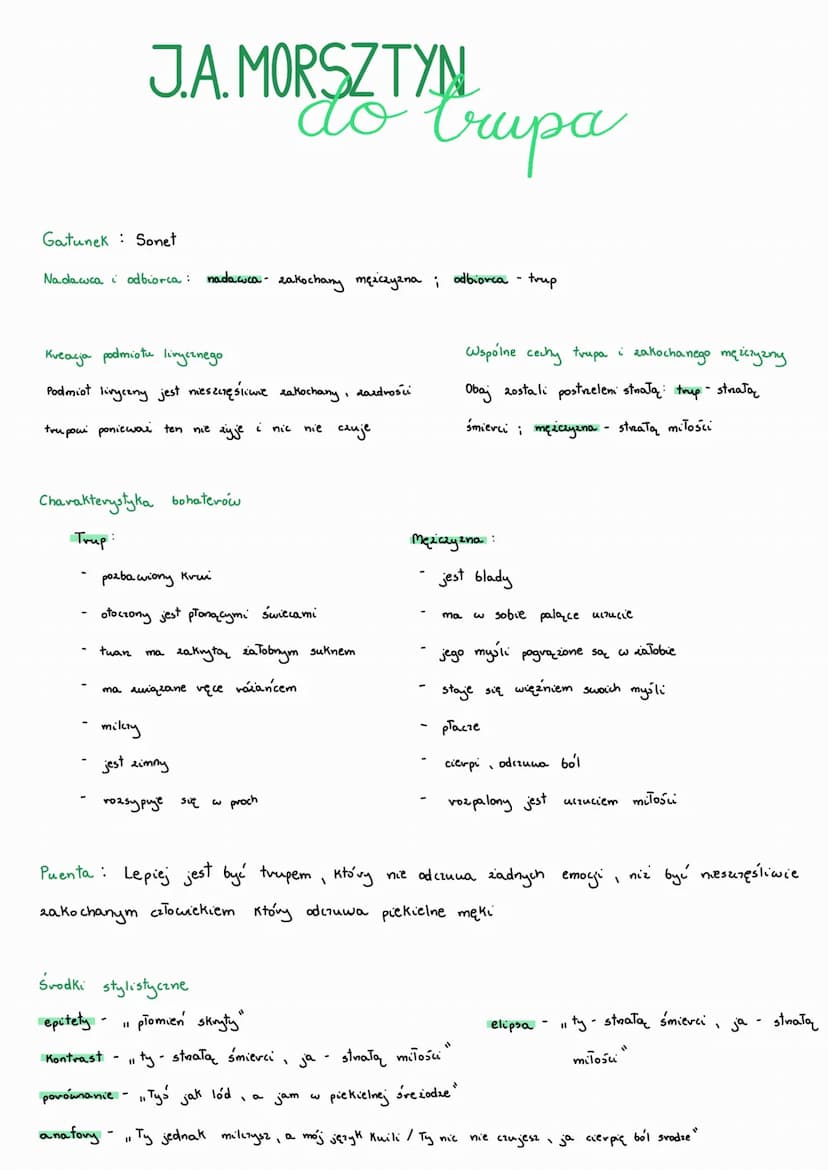 J.A. MORSZTYN
do trupa
Gatunek : Sonet
Nadawca i odbiorca : nadawca - zakochany mężczyzna ; odbiorca - trup
Kreacja podmiotu lirycznego
Podmiot liryczny jest nieszczęśliwie zakochany, zazdrości
trupowi ponieważ ten nie żyje i nic nie czuje
Wspólne cechy trupa i zakochanego mężczyzny
Obaj zostali postrzeleni strzałą: trup - strzałą
śmierci ; mężczyzna - strzałą miłości
Charakterystyka bohaterów
Trup :
- pozbawiony krwi
- otoczony jest płonącymi świecami
- twarz ma zakrytą żałobnym suknem
- ma związane ręce różańcem
- milczy
- jest zimny
- rozsypuje się w proch
Mężczyzna :
- jest blady
- ma w sobie palące uczucie
- jego myśli pogrążone są w żałobie
- staje się więźniem swoich myśli
- płacze
- cierpi, odczuwa ból
- rozpalony jest uczuciem miłości
Puenta : Lepiej jest być trupem, który nie odczuwa żadnych emocji, niż być nieszczęśliwie
zakochanym człowiekiem który odczuwa piekielne męki
Środki stylistyczne
epitety - „płomień skryty"
kontrast - „ty - strzałą śmierci, ja - strzałą miłości"
porównanie - „Tyś jak lód, a jam w piekielnej śreżodze"
anafory - „Ty jednak milczysz, a mój język kwili / Ty nic nie czujesz, ja cierpię ból srodze"
elipsa - „ty - strzałą śmierci, ja - strzałą
miłości"